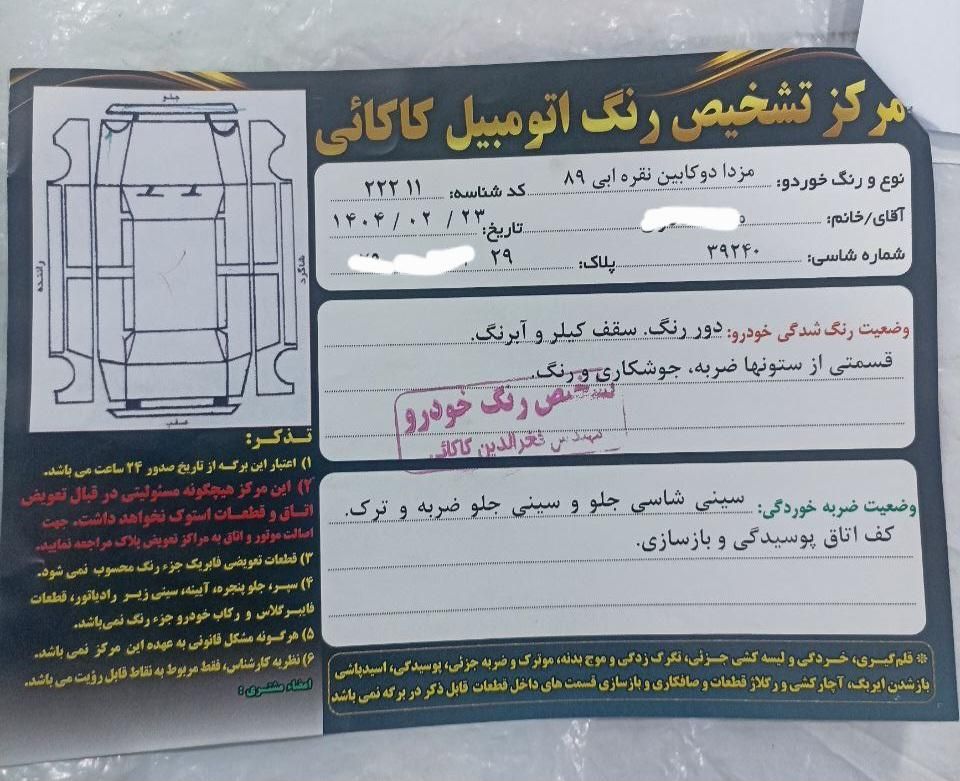 مرکز تشخیص رنگ اتومبیل کاکائی
نوع و رنگ خوردو: مزدا دوکابین نقره ابی ۸۹ کد شناسه: ۲۲۲۱۱
آقای/خانم: تاریخ: ۱۴۰۴ / ۰۲ / ۲۳
شماره شاسی: ۳۹۲۴۰ پلاک: ۲۹
وضعیت رنگ شدگی خودرو: دور رنگ. سقف کیلر و آبرنگ.
قسمتی از ستونها ضربه، جوشکاری و رنگ.
تشخیص رنگ خودرو
مهندس فخرالدین کاکائی
وضعیت ضربه خوردگی: سینی شاسی جلو و سینی جلو ضربه و ترک.
کف اتاق پوسیدگی و بازسازی.
※ قلم‌گیری، خردگی و لیسه کشی جزئی، تگرگ زدگی و موج بدنه، موترک و ضربه جزئی، پوسیدگی، اسیدپاشی
بازشدن ایربگ، آچارکشی و رگلاژ قطعات و صافکاری و بازسازی قسمت های داخل قطعات قابل ذکر در برگه نمی باشد
جلو
راننده
شاگرد
عقب
تذکر:
۱) اعتبار این برگه از تاریخ صدور ۲۴ ساعت می باشد.
۲) این مرکز هیچگونه مسئولیتی در قبال تعویض
اتاق و قطعات استوک نخواهد داشت. جهت
اصالت موتور و اتاق به مراکز تعویض پلاک مراجعه نمایید.
۳) قطعات تعویضی فابریک جزء رنگ محسوب نمی شود.
۴) سپر، جلو پنجره، آیینه، سینی زیر رادیاتور، قطعات
فایبرگلاس و رکاب خودرو جزء رنگ نمی‌باشد.
۵) هرگونه مشکل قانونی به عهده این مرکز نمی باشد.
۶) نظریه کارشناس، فقط مربوط به نقاط قابل رؤیت می باشد.
امضاء مشتری: